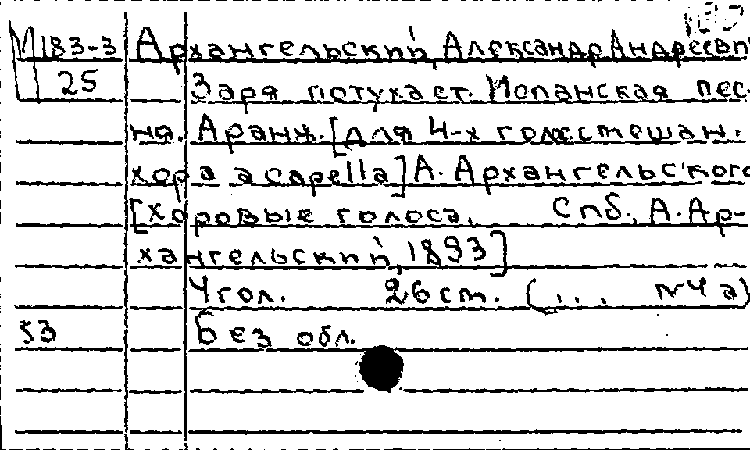 М183-3 Архангельский, Александр Андреевич
25 Заря потухает. Испанская пес-
ня. Аранж. [для 4-х голос смешан.
хора a capella] А. Архангельского
[хоровые голоса. Спб., А. Ар-
хангельский, 1893]
4 гол. 26 ст. (... №4 а)
53 Без обл.